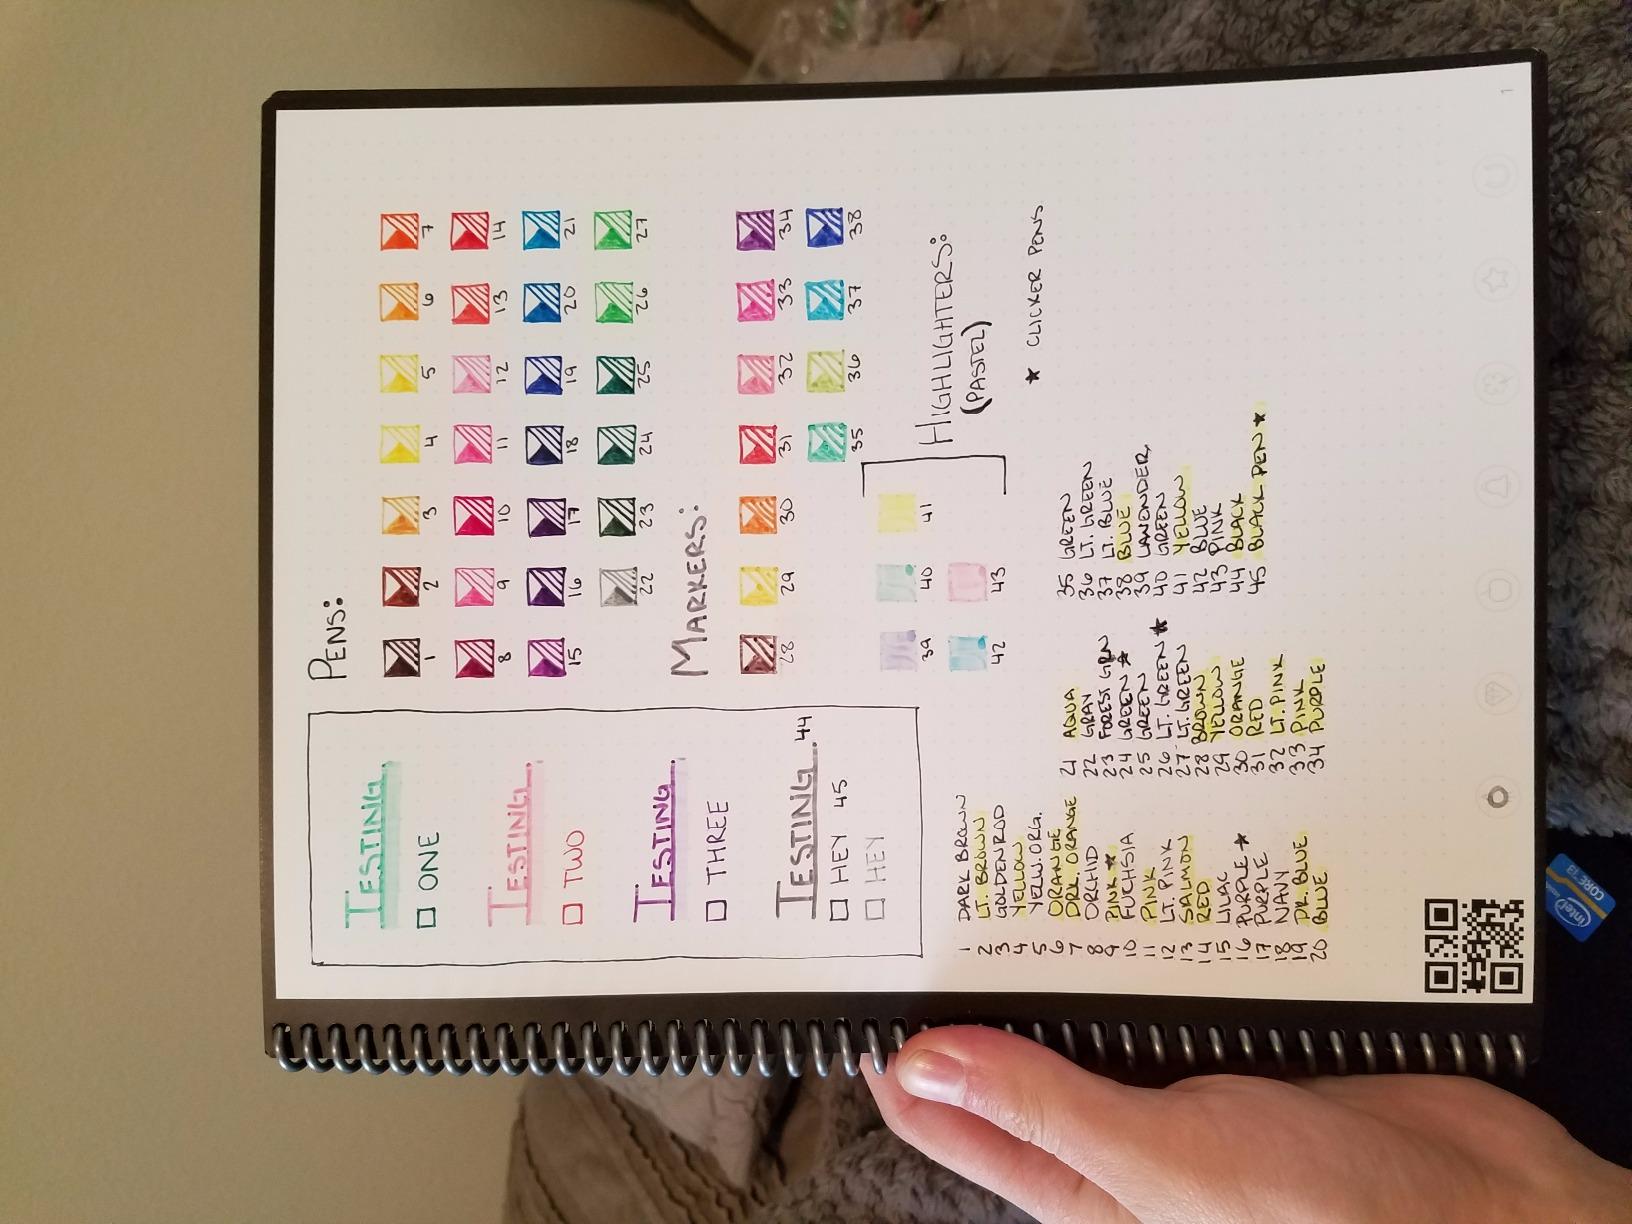 PENS:
1 2 3 4 5 6 7
8 9 10 11 12 13 14
15 16 17 18 19 20 21
22 23 24 25 26 27
MARKERS:
28 29 30 31 32 33 34
35 36 37 38
39 40 41
42 43
HIGHLIGHTERS:
(PASTEL)
★ CLICKER PENS
TESTING.
ONE
TESTING.
TWO
TESTING.
THREE
TESTING. 44
HEY 45
HEY
1 DARK BROWN
2 LT. BROWN
3 GOLDENROD
4 YELLOW
5 YELLW.ORG.
6 ORANGE
7 DRK. ORANGE
8 ORCHID
9 PINK ★
10 FUCHSIA
11 PINK
12 LT. PINK
13 SALMON
14 RED
15 LILAC
16 PURPLE ★
17 PURPLE
18 NAVY
19 DR. BLUE
20 BLUE
21 AQUA
22 GRAY
23 FOREST GRN
24 GREEN ★
25 GREEN
26 LT. GREEN ★
27 LT. GREEN
28 BROWN
29 YELLOW
30 ORANGE
31 RED
32 LT. PINK
33 PINK
34 PURPLE
35 GREEN
36 LT. GREEN
37 LT. BLUE
38 BLUE
39 LAVENDER
40 GREEN
41 YELLOW
42 BLUE
43 PINK
44 BLACK
45 BLACK PEN ★
1
intel
CORE i3